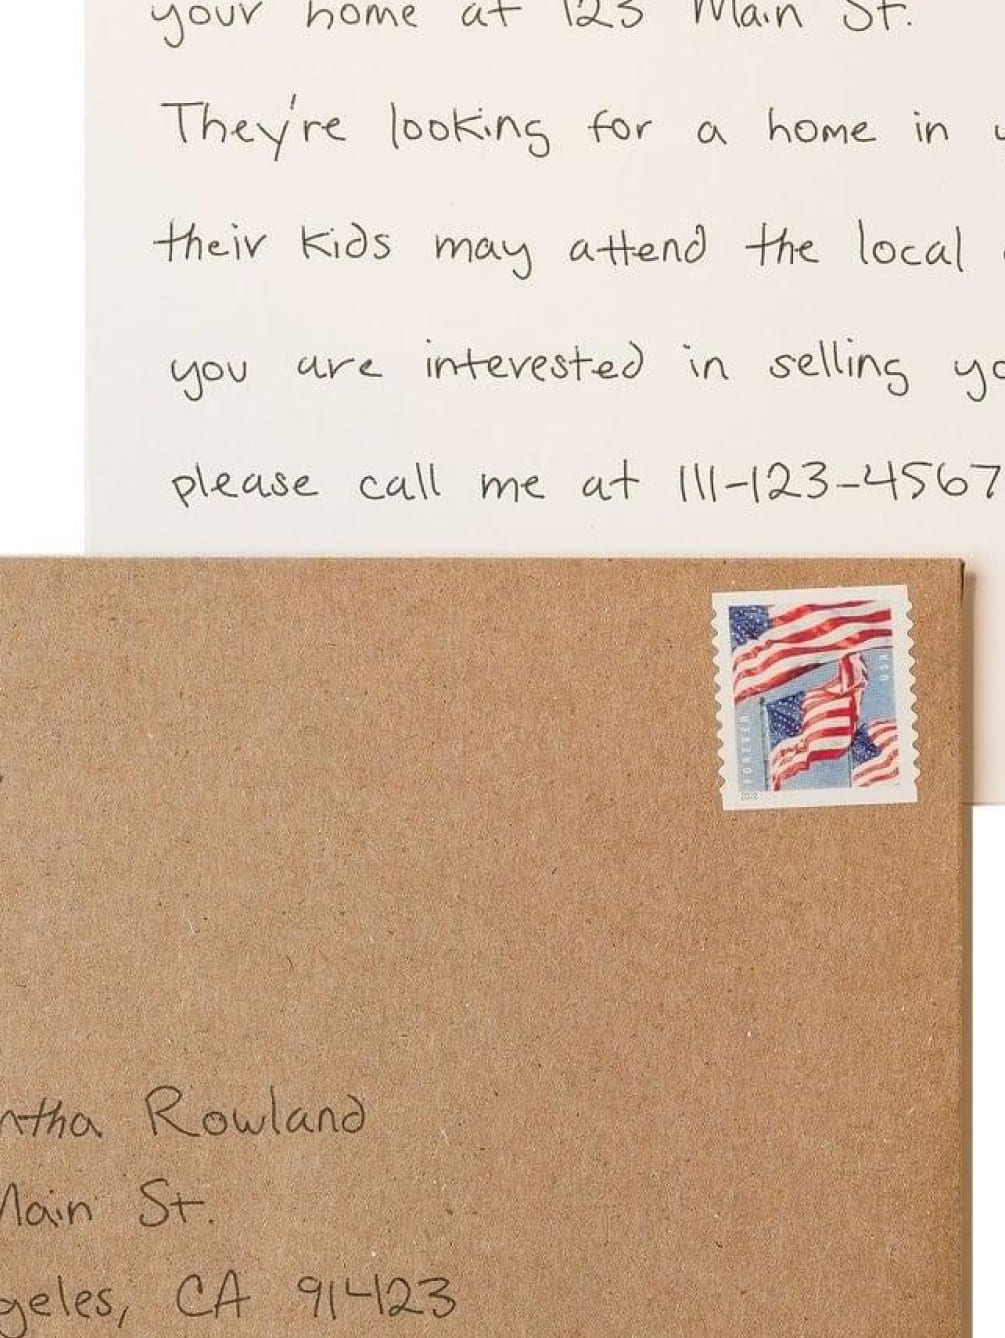 your home at 123 Main St.
They're looking for a home in
their kids may attend the local
you are interested in selling
please call me at 111-123-4567
USA
FOREVER
2022
Rowland
Main St.
CA 91423